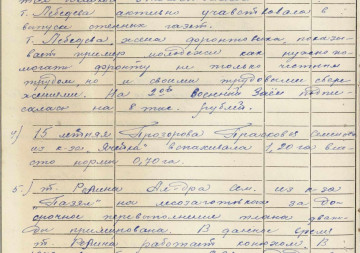 т. Лебедева активно участвовала в
выпуске стенных газет.
Т. Лебедева жена фронтовика, показы-
вает пример молодежи как нужно по-
могать фронту не только честным
трудом, но и своими трудовыми сбере-
жениями. На 2ой Военный Заём подпи-
салась на 8 тыс. рублей.
4) 15 летняя Прозорова Прасковья
из к-за вспахивала 1,20 га вме-
сто нормы 0,70 га.
5.) Т. Родина Ал-дра Сем. из к-за
на лесозаготовках за до-
срочное перевыполнение плана дваж-
ды премирована. В данное время
т. Родина работает конюхом. В